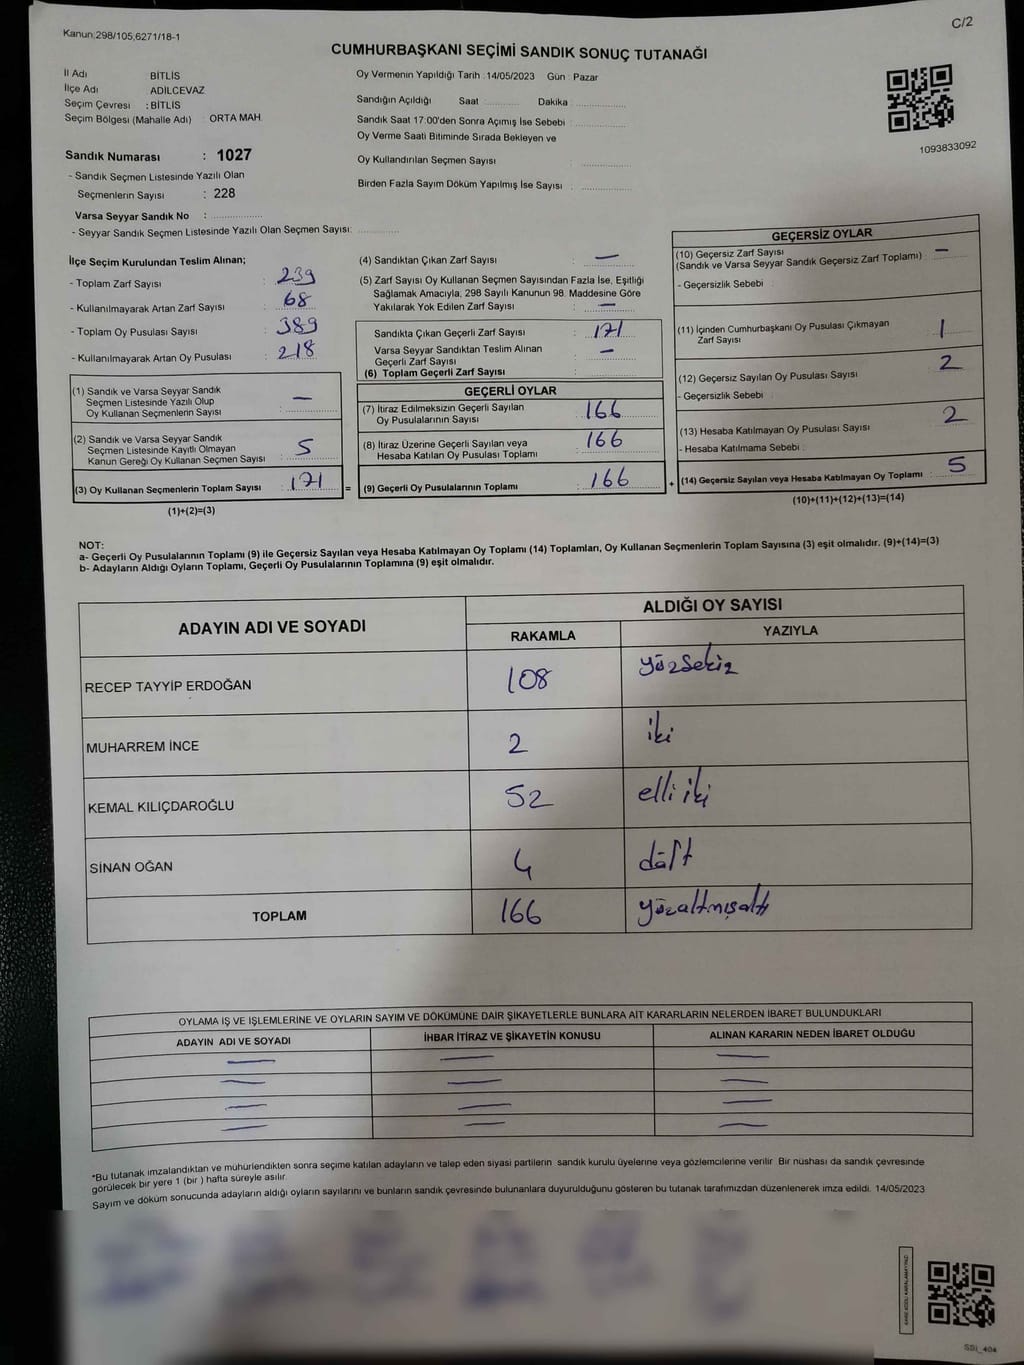 Kanun:298/105,6271/18-1
C/2
CUMHURBAŞKANI SEÇİMİ SANDIK SONUÇ TUTANAĞI
İl Adı BİTLİS
İlçe Adı ADİLCEVAZ
Seçim Çevresi : BİTLİS
Seçim Bölgesi (Mahalle Adı) : ORTA MAH.
Sandık Numarası : 1027
- Sandık Seçmen Listesinde Yazılı Olan
Seçmenlerin Sayısı : 228
Varsa Seyyar Sandık No :
- Seyyar Sandık Seçmen Listesinde Yazılı Olan Seçmen Sayısı:
Oy Vermenin Yapıldığı Tarih : 14/05/2023 Gün : Pazar
Sandığın Açıldığı Saat Dakika
Sandık Saat 17:00'den Sonra Açımış İse Sebebi :
Oy Verme Saati Bitiminde Sırada Bekleyen ve
Oy Kullandırılan Seçmen Sayısı :
Birden Fazla Sayım Döküm Yapılmış İse Sayısı :
1093833092
İlçe Seçim Kurulundan Teslim Alınan;
- Toplam Zarf Sayısı : 239
- Kullanılmayarak Artan Zarf Sayısı : 68
- Toplam Oy Pusulası Sayısı : 389
- Kullanılmayarak Artan Oy Pusulası : 218
(1) Sandık ve Varsa Seyyar Sandık
Seçmen Listesinde Yazılı Olup
Oy Kullanan Seçmenlerin Sayısı : —
(2) Sandık ve Varsa Seyyar Sandık
Seçmen Listesinde Kayıtlı Olmayan
Kanun Gereği Oy Kullanan Seçmen Sayısı : 5
(3) Oy Kullanan Seçmenlerin Toplam Sayısı : 171 =
(1)+(2)=(3)
(4) Sandıktan Çıkan Zarf Sayısı : —
(5) Zarf Sayısı Oy Kullanan Seçmen Sayısından Fazla İse, Eşitliği
Sağlamak Amacıyla, 298 Sayılı Kanunun 98. Maddesine Göre
Yakılarak Yok Edilen Zarf Sayısı : —
Sandıkta Çıkan Geçerli Zarf Sayısı : 171
Varsa Seyyar Sandıktan Teslim Alınan
Geçerli Zarf Sayısı : —
(6) Toplam Geçerli Zarf Sayısı :
GEÇERLİ OYLAR
(7) İtiraz Edilmeksizin Geçerli Sayılan
Oy Pusulalarının Sayısı : 166
(8) İtiraz Üzerine Geçerli Sayılan veya
Hesaba Katılan Oy Pusulası Toplamı : 166
(9) Geçerli Oy Pusulalarının Toplamı : 166 +
GEÇERSİZ OYLAR
(10) Geçersiz Zarf Sayısı
(Sandık ve Varsa Seyyar Sandık Geçersiz Zarf Toplamı) : —
- Geçersizlik Sebebi :
(11) İçinden Cumhurbaşkanı Oy Pusulası Çıkmayan
Zarf Sayısı : 1
(12) Geçersiz Sayılan Oy Pusulası Sayısı : 2
- Geçersizlik Sebebi :
(13) Hesaba Katılmayan Oy Pusulası Sayısı : 2
- Hesaba Katılmama Sebebi :
(14) Geçersiz Sayılan veya Hesaba Katılmayan Oy Toplamı : 5
(10)+(11)+(12)+(13)=(14)
NOT:
a- Geçerli Oy Pusulalarının Toplamı (9) ile Geçersiz Sayılan veya Hesaba Katılmayan Oy Toplamı (14) Toplamları, Oy Kullanan Seçmenlerin Toplam Sayısına (3) eşit olmalıdır. (9)+(14)=(3)
b- Adayların Aldığı Oyların Toplamı, Geçerli Oy Pusulalarının Toplamına (9) eşit olmalıdır.
ADAYIN ADI VE SOYADI ALDIĞI OY SAYISI
RAKAMLA YAZIYLA
RECEP TAYYİP ERDOĞAN 108 yüzsekiz
MUHARREM İNCE 2 iki
KEMAL KILIÇDAROĞLU 52 elli iki
SİNAN OĞAN 4 dört
TOPLAM 166 yüzaltmışaltı
OYLAMA İŞ VE İŞLEMLERİNE VE OYLARIN SAYIM VE DÖKÜMÜNE DAİR ŞİKAYETLERLE BUNLARA AİT KARARLARIN NELERDEN İBARET BULUNDUKLARI
ADAYIN ADI VE SOYADI İHBAR İTİRAZ VE ŞİKAYETİN KONUSU ALINAN KARARIN NEDEN İBARET OLDUĞU
— — —
— — —
— — —
— — —
*Bu tutanak imzalandıktan ve mühürlendikten sonra seçime katılan adayların ve talep eden siyasi partilerin sandık kurulu üyelerine veya gözlemcilerine verilir. Bir nüshası da sandık çevresinde
görülecek bir yere 1 (bir ) hafta süreyle asılır.
Sayım ve döküm sonucunda adayların aldığı oyların sayılarını ve bunların sandık çevresinde bulunanlara duyurulduğunu gösteren bu tutanak tarafımızdan düzenlenerek imza edildi. 14/05/2023
SSİ_404